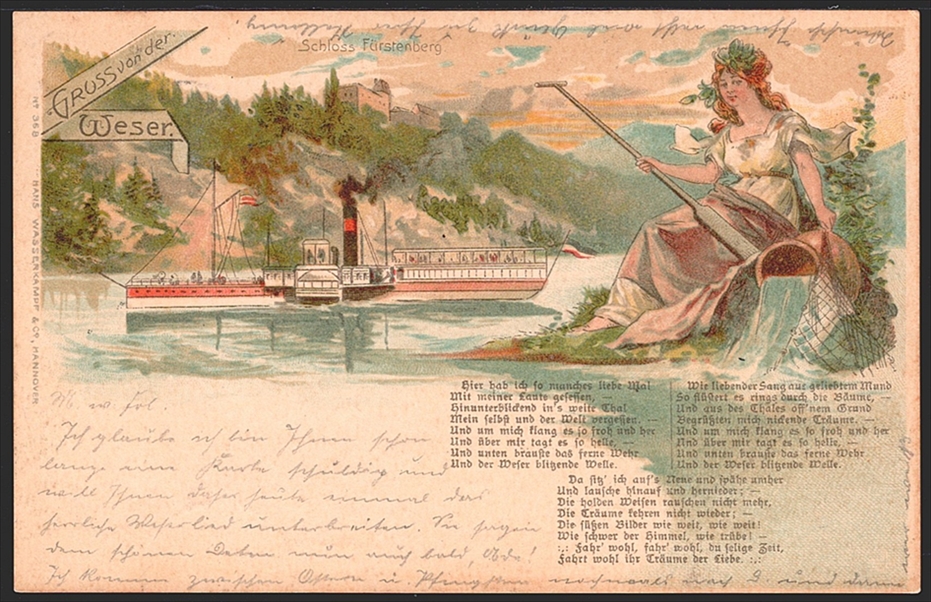 Gruss von der
Weser.
Schloss Fürstenberg
Nº 368 HANS WASSERKAMPF & Cº, HANNOVER
Hier hab ich so manches liebe Mal
Mit meiner Laute gesessen, —
Hinunterblickend in's weite Thal
Mein selbst und der Welt vergessen. —
Und um mich klang es so froh und her
Und über mir tagt es so helle, —
Und unten brauste das ferne Wehr
Und der Weser blitzende Welle.
Wie liebender Sang aus geliebtem Mund
So flüstert es rings durch die Bäume, —
Und aus des Thales off'nem Grund
Begrüßten mich nickende Träume. —
Und um mich klang es so froh und her
Und über mir tagt es so helle, —
Und unten brauste das ferne Wehr
Und der Weser blitzende Welle.
Da sitz' ich auf's Neue und spähe umher
Und lausche hinauf und hernieder; —
Die holden Weisen rauschen nicht mehr,
Die Träume kehren nicht wieder; —
Die süßen Bilder wie weit, wie weit!
Wie schwer der Himmel, wie trübe! —
:,: Fahr' wohl, fahr' wohl, du selige Zeit,
Fahrt wohl ihr Träume der Liebe. :,:
Ich glaube ich bin Ihnen schon
lange eine Karte schuldig und
will Ihnen daher heute einmal das
herrliche Weserlied unterbreiten. Sie sagen
dem schönen nun auch bald Ade!
Ich komme zwischen Ostern u. Pfingsten nochmals nach und dann